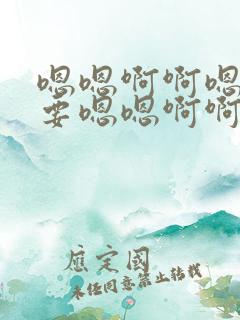 嗯嗯啊啊嗯
要嗯嗯啊啊
应定国
未经同意禁止转载